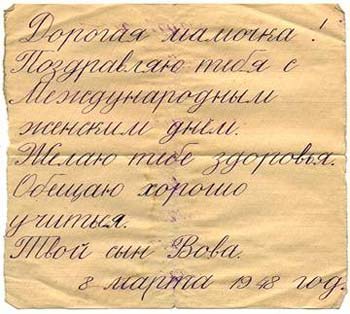 Дорогая мамочка!
Поздравляю тибя с
Международным
женским днём.
Желаю тибе здоровья.
Обещаю хорошо
учиться.
Твой сын Вова.
8 марта 1948 год.